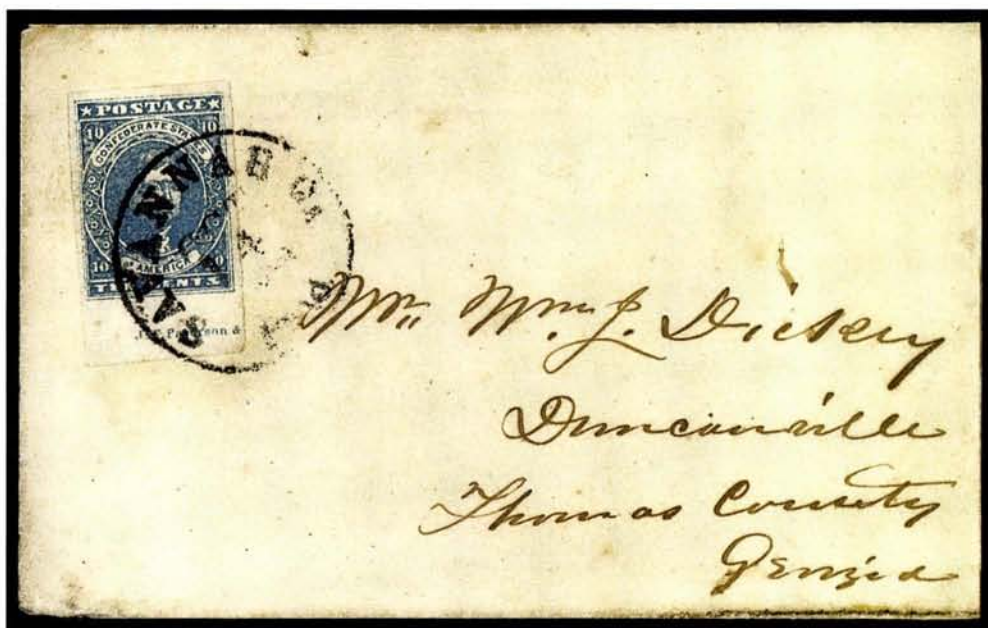 ★ POSTAGE ★
10 10
CONFEDERATE STATES
OF AMERICA
10 10
TEN CENTS
Paterson &
SAVANNAH GA
Mrs Wm. J. Dickey
Duncanville
Thomas County
Georgia